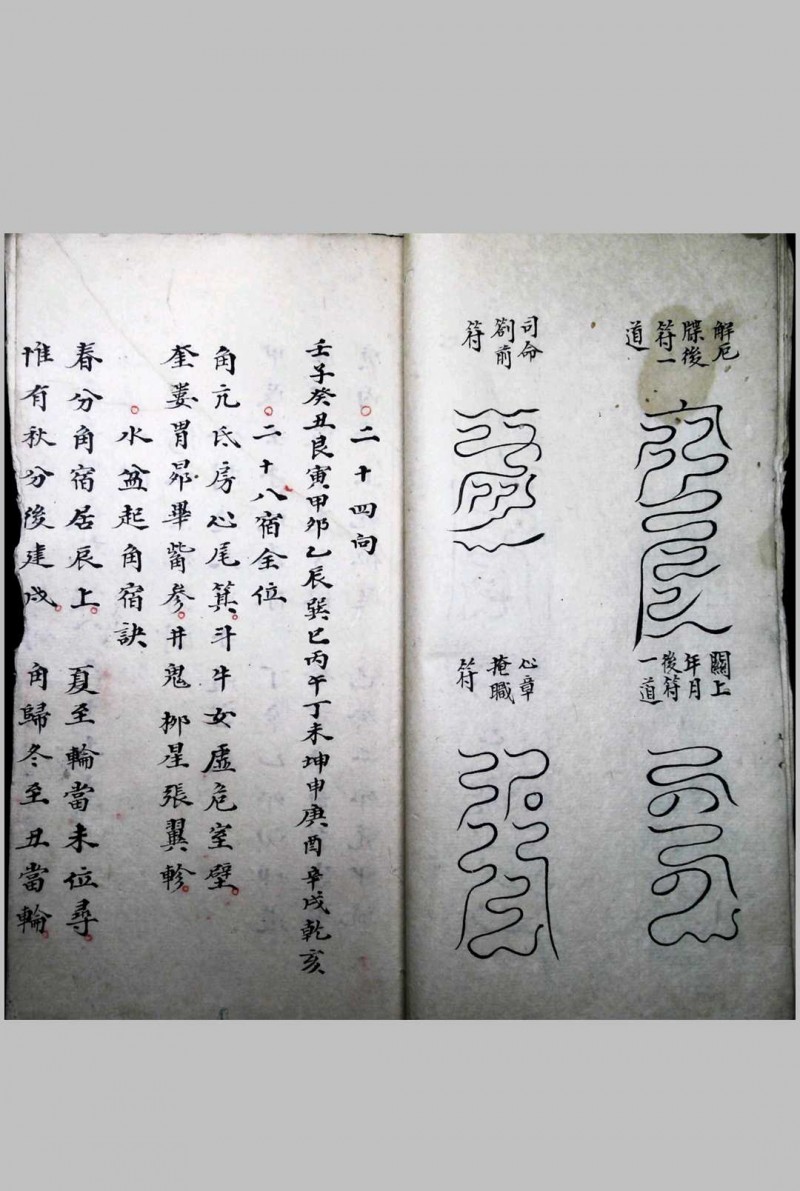 解厄
牒後
符一
道
司命
箚前
符
關上
年月
後符
一道
心章
掩職
符
。二十四向
壬子癸丑艮寅甲卯乙辰巽巳丙午丁未坤申庚酉辛戌乾亥
。二十八宿全位
角亢氐房心尾箕。斗牛女虛危室壁。
奎婁胃昴畢觜參。井鬼柳星張翼軫。
。水盆起角宿訣
春分角宿居辰上。夏至輪當未位尋。
惟有秋分後建戌。角歸冬至丑當輪。